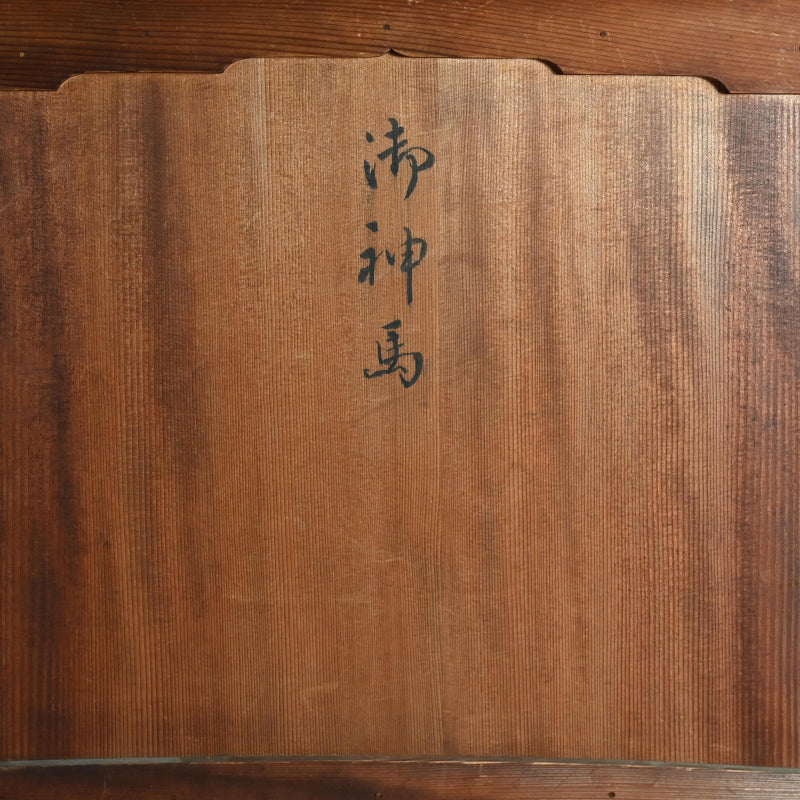 御神馬